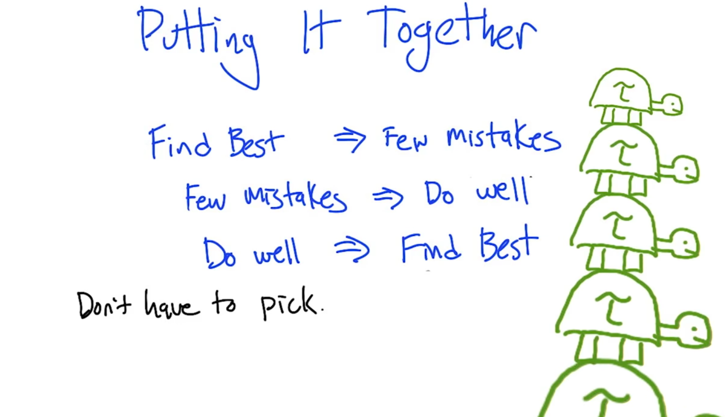 Putting It Together
Find Best ⇒ Few mistakes
Few mistakes ⇒ Do well
Do well ⇒ Find Best
Don't have to pick.
τ
τ
τ
τ
τ